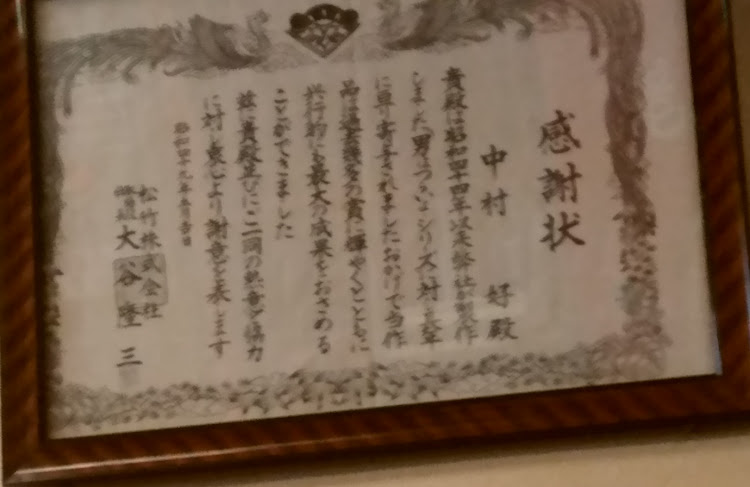 感謝状
中村 好殿
貴殿は昭和四十四年以来弊社が製作
しました「男はつらいよ」シリズに対し長年
に亘り寄せられましたおかげで当作
品は数多の賞に輝やくとともに
興行的にも最大の成果をおさめる
ことができました
茲に貴殿並びに一同の熱意と協力
に対し衷心より謝意を表します
昭和四十九年
松竹株式会社
大谷隆三